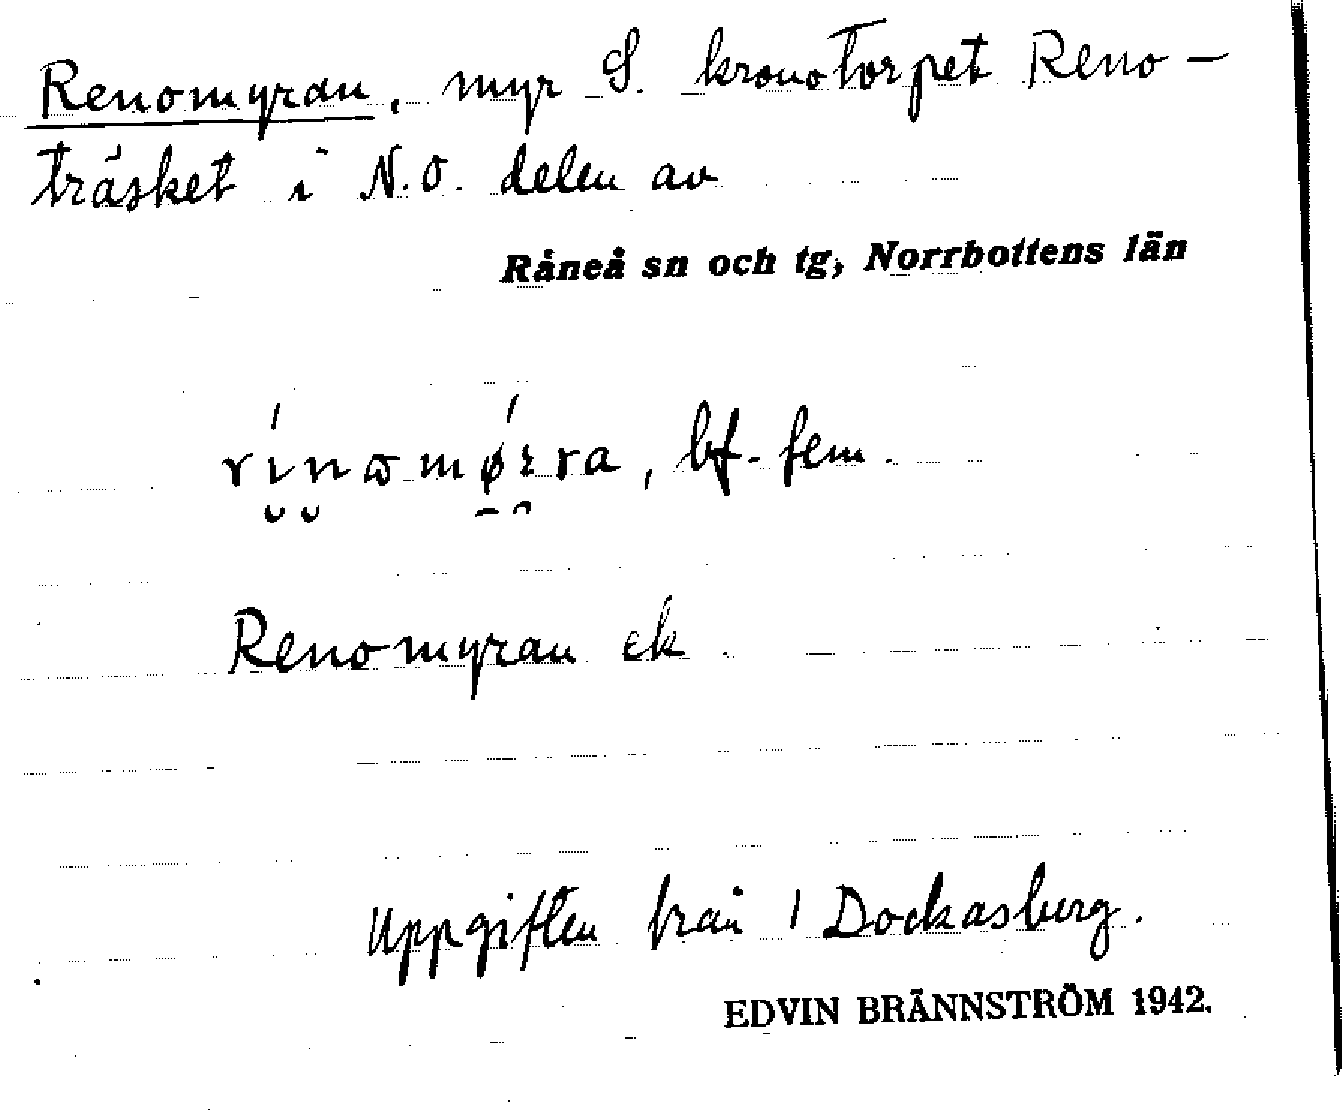 Renomyran, myr S. kronotorpet Reno-
träsket i N.O. delen av
Råneå sn och tg, Norrbottens län
bf. fem.
Renomyran ek
Uppgiften från 1 Dockasberg.
EDVIN BRÄNNSTRÖM 1942.